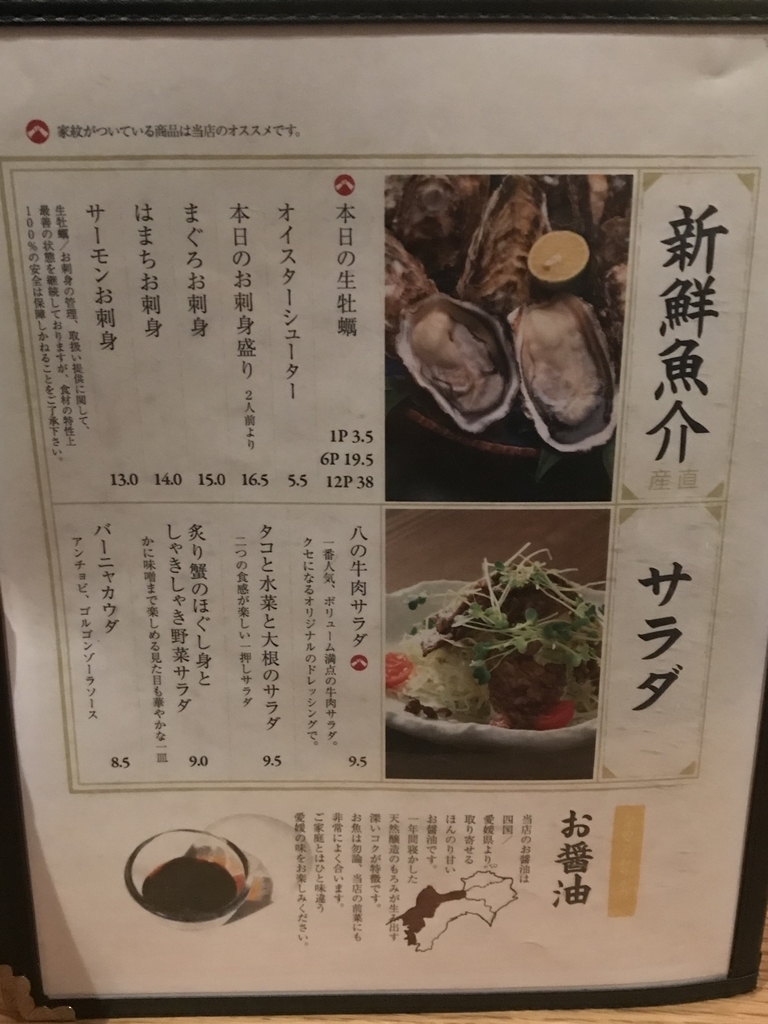 家紋がついている商品は当店のオススメです。
新鮮魚介
産直
本日の生牡蠣
1P 3.5
6P 19.5
12P 38
オイスターシューター
5.5
本日のお刺身盛り 2人前より
16.5
まぐろお刺身
15.0
はまちお刺身
14.0
サーモンお刺身
13.0
生牡蠣/お刺身の管理、取扱い提供に関して、
最善の状態を継続しておりますが、食材の特性上
100%の安全は保障しかねることをご了承下さい。
サラダ
八の牛肉サラダ
一番人気、ボリューム満点の牛肉サラダ。
クセになるオリジナルのドレッシングで。
9.5
タコと水菜と大根のサラダ
二つの食感が楽しい一押しサラダ
9.5
炙り蟹のほぐし身と
しゃきしゃき野菜サラダ
かに味噌まで楽しめる見た目も華やかな一皿
9.0
バーニャカウダ
アンチョビ、ゴルゴンゾーラソース
8.5
お醤油
当店のお醤油は
四国/
愛媛県より
取り寄せる
ほんのり甘い
お醤油です。
一年間寝かした
天然醸造のもろみが生み出す
深いコクが特徴です。
お魚は勿論、当店の前菜にも
非常によく合います。
ご家庭とはひと味違う
愛媛の味をお楽しみください。